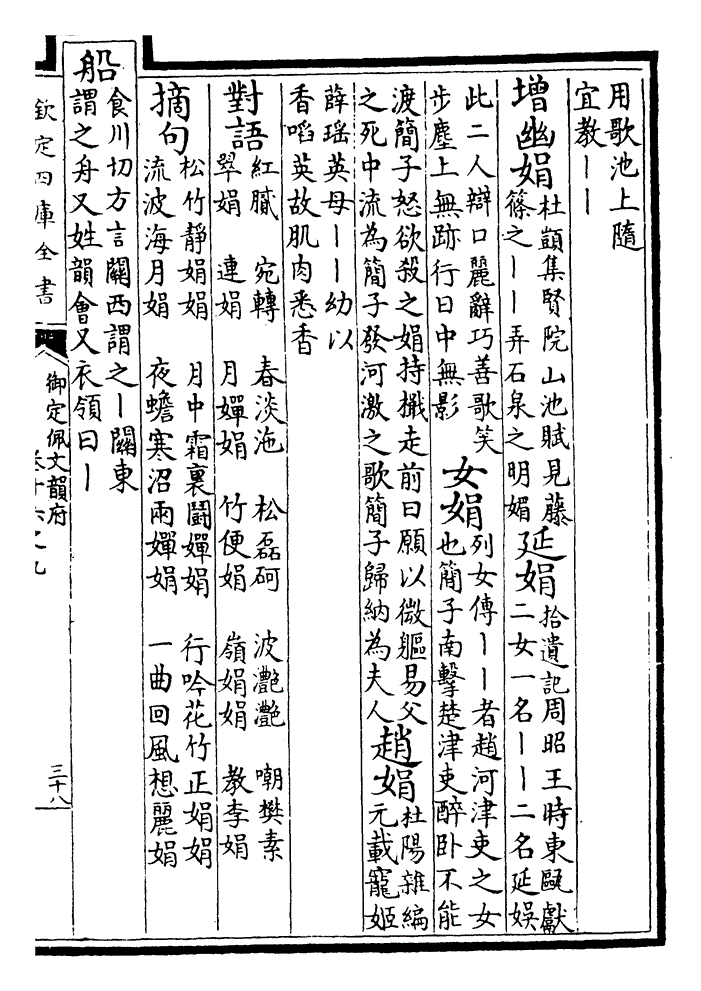 用歌池上隨
宜教丨丨
增幽娟杜顗集賢院山池賦見藤
篠之丨丨弄石泉之明媚延娟拾遺記周昭王時東甌獻
二女一名丨丨二名延娛
此二人辯口麗辭巧善歌笑
步塵上無跡行日中無影女娟列女傳丨丨者趙河津吏之女
也簡子南擊楚津吏醉卧不能
渡簡子怒欲殺之娟持檝走前曰願以微軀易父
之死中流為簡子發河激之歌簡子歸納為夫人趙娟杜陽雜編
元載寵姬
薛瑶英母丨丨幼以
香啗英故肌肉悉香
對語紅膩 宛轉 春淡沲 松磊砢 波灔灔 嘲樊素
翠娟 連娟 月嬋娟 竹便娟 嶺娟娟 教李娟
摘句松竹靜娟娟 月中霜裏鬬嬋娟 行吟花竹正娟娟
流波海月娟 夜蟾寒沼兩嬋娟 一曲回風想麗娟
船食川切方言關西謂之丨關東
謂之舟又姓韻會又衣領曰丨
欽定四庫全書
御定佩文韻府
卷十六之九
三十八